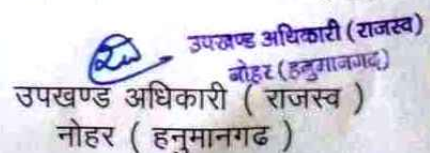 उपखण्ड अधिकारी (राजस्व)
नोहर (हनुमानगढ)
उपखण्ड अधिकारी ( राजस्व )
नोहर ( हनुमानगढ )